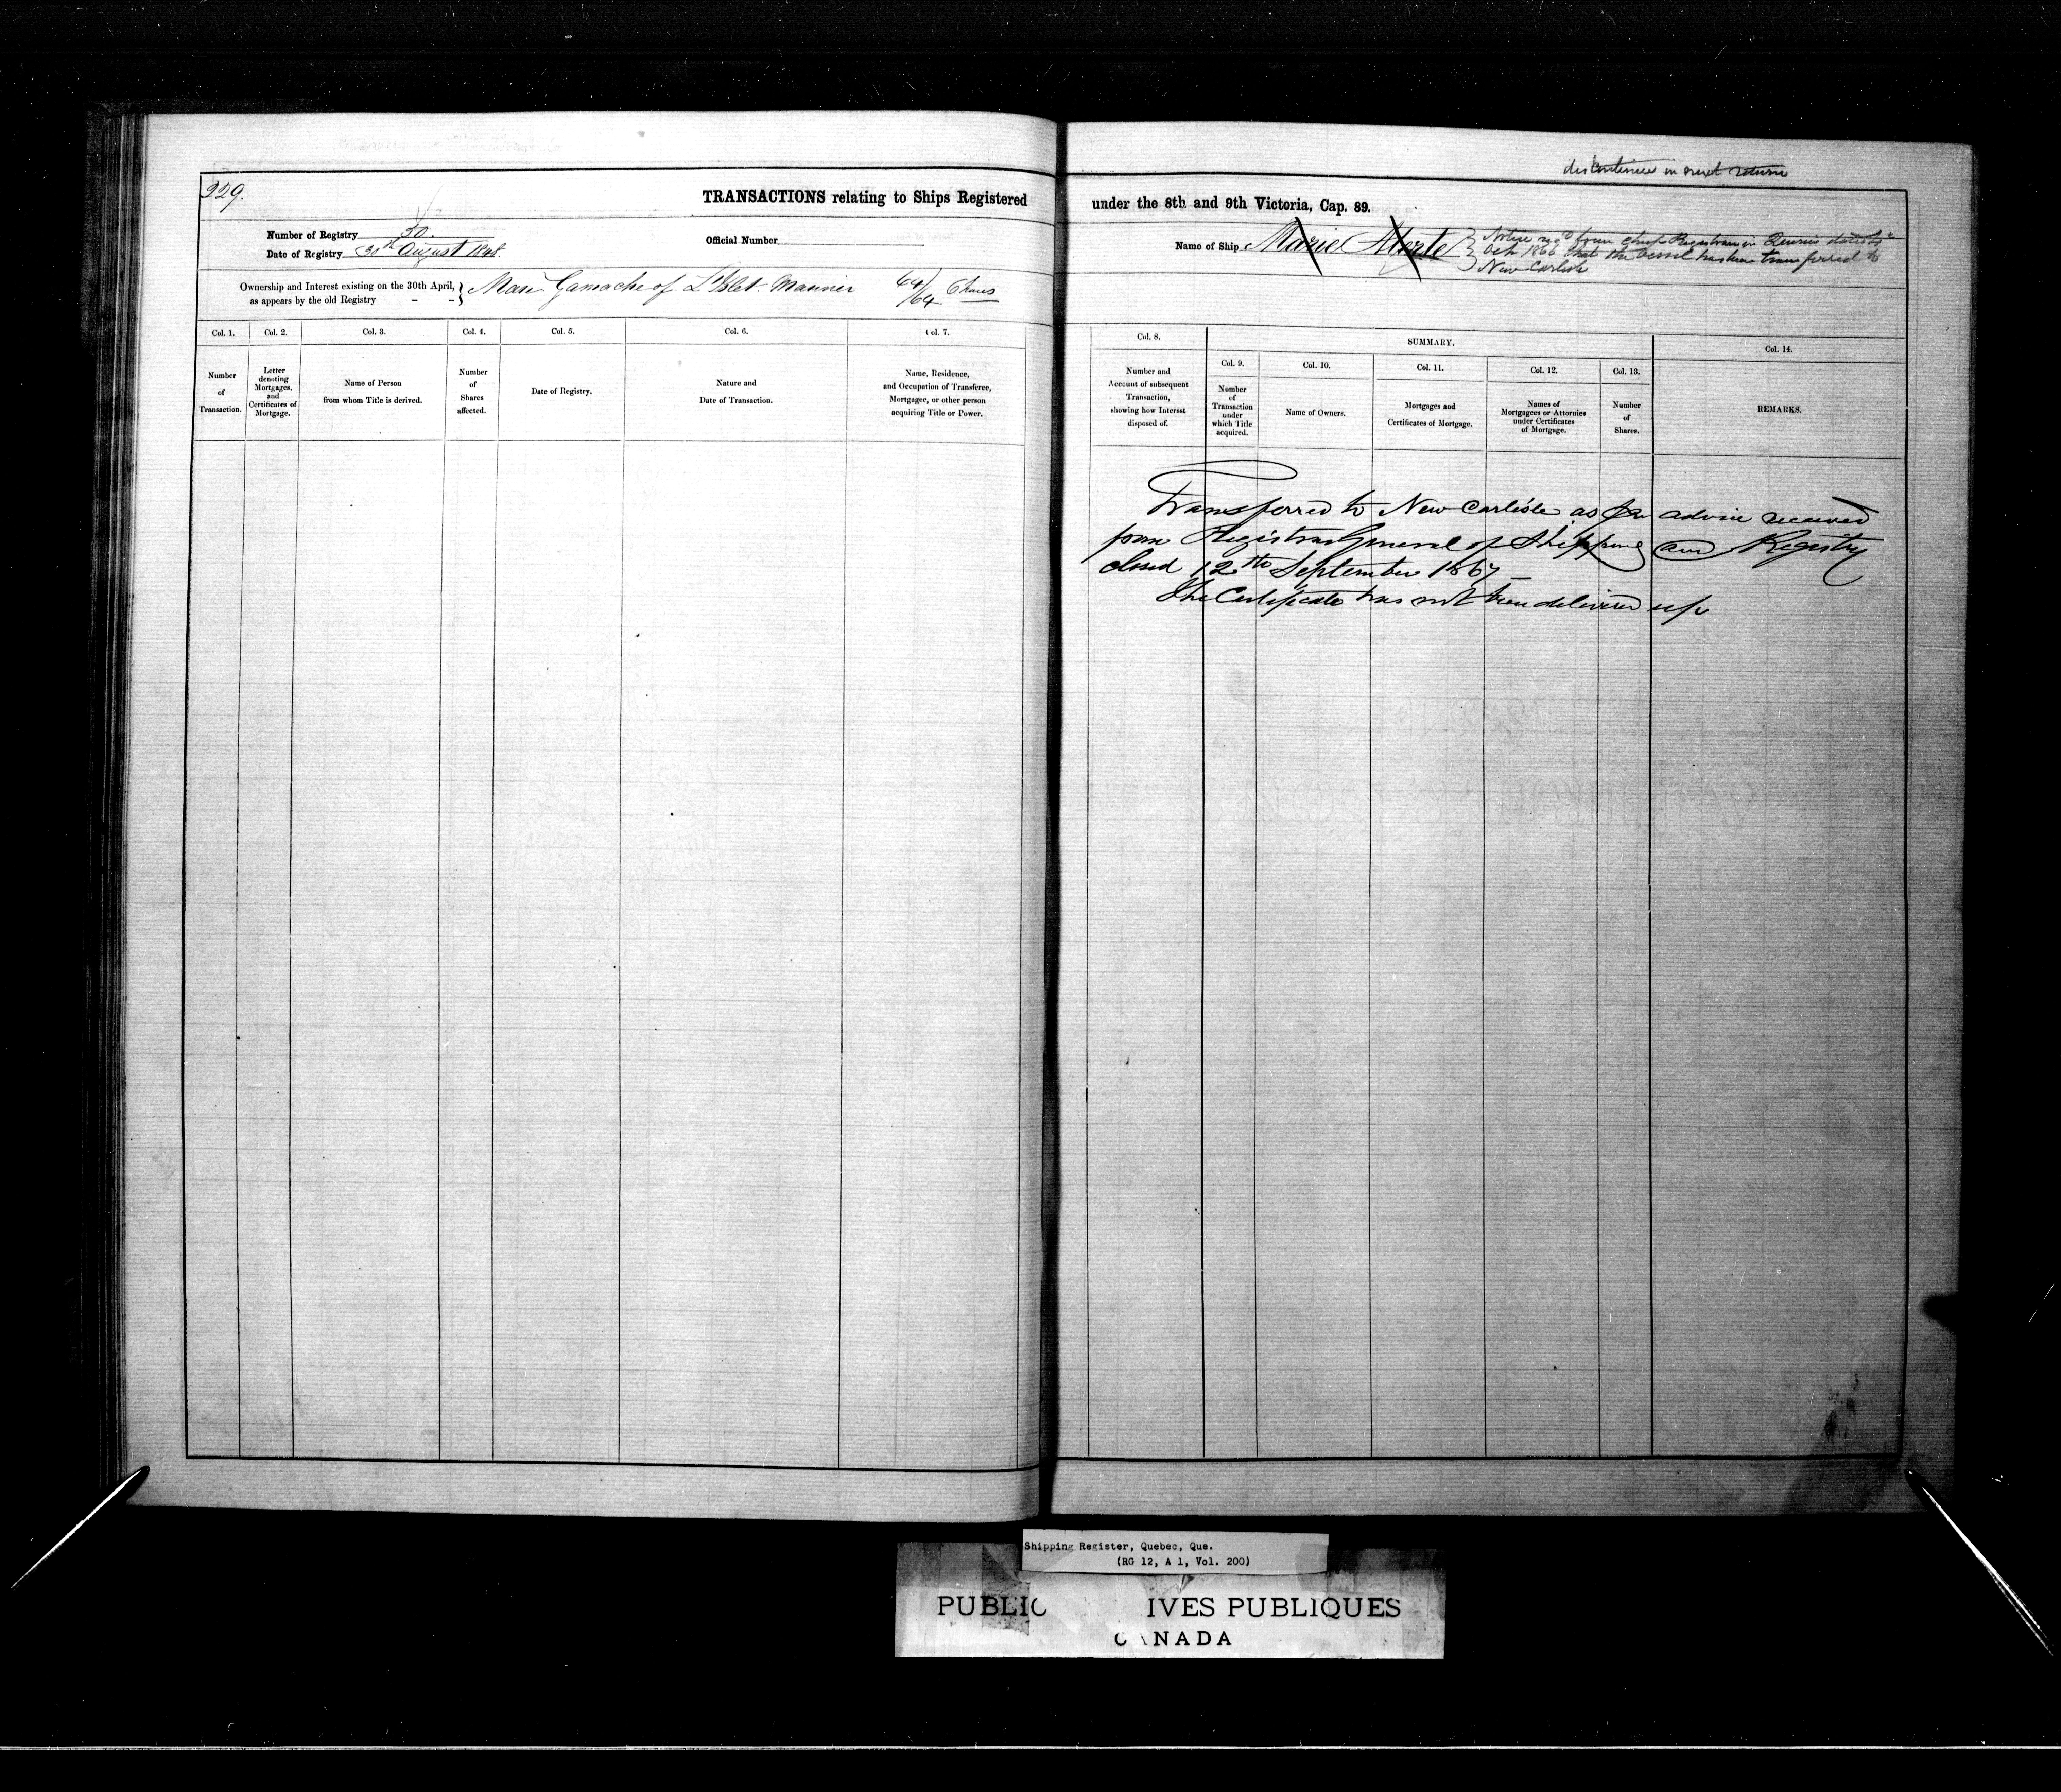 discontinue in next return
329.
TRANSACTIONS relating to Ships Registered under the 8th and 9th Victoria, Cap. 89.
Number of Registry 50.
Official Number
Date of Registry 30th August 1848.
Name of Ship Marie
Notice recd from chief Registrar in dated
Oct 1866 that the vessel has been transferred to
New Carlisle
Ownership and Interest existing on the 30th April,
as appears by the old Registry - -
Gamache of L'Islet Mariner 64/64 Shares
Col. 1.
Number
of
Transaction.
Col. 2.
Letter
denoting
Mortgages,
and
Certificates of
Mortgage.
Col. 3.
Name of Person
from whom Title is derived.
Col. 4.
Number
of
Shares
affected.
Col. 5.
Date of Registry.
Col. 6.
Nature and
Date of Transaction.
Col. 7.
Name, Residence,
and Occupation of Transferee,
Mortgagee, or other person
acquiring Title or Power.
Col. 8.
Number and
Account of subsequent
Transaction,
showing how Interest
disposed of.
SUMMARY.
Col. 9.
Number
of
Transaction
under
which Title
acquired.
Col. 10.
Name of Owners.
Col. 11.
Mortgages and
Certificates of Mortgage.
Col. 12.
Names of
Mortgagees or Attornies
under Certificates
of Mortgage.
Col. 13.
Number
of
Shares.
Col. 14.
REMARKS.
Transferred to New Carlisle as per advice received
from Registrar General of Shipping and Registry
closed 12th September 1867
The Certificate has not been delivered up
Shipping Register, Quebec, Que.
(RG 12, A 1, Vol. 200)
PUBLIC IVES PUBLIQUES
CANADA